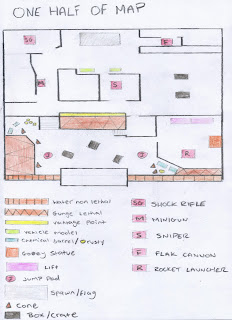 ONE HALF OF MAP
SG
F
M
S
R
J
J
Water non lethal
Gunge Lethal
vantage point
vehicle model
Chemical barrel / rusty
Gooey Statue
Lift
J Jump Pad
Spawn/flag
Cone
Box/crate
SG SHOCK RIFLE
M MINIGUN
S SNIPER
F FLAK CANNON
R ROCKET LAUNCHER